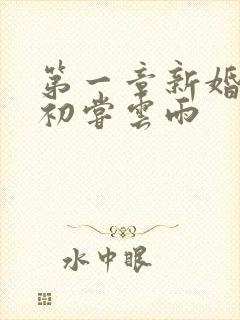 第一章新婚
初嘗雲雨
水中眼